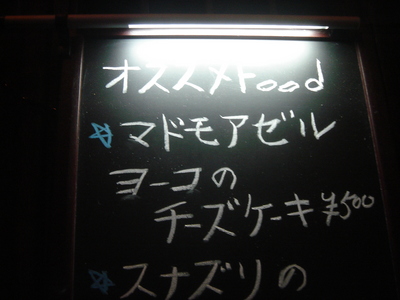 オススメFood
☆マドモアゼル
ヨーコの
チーズケーキ ¥500
☆スナズリの